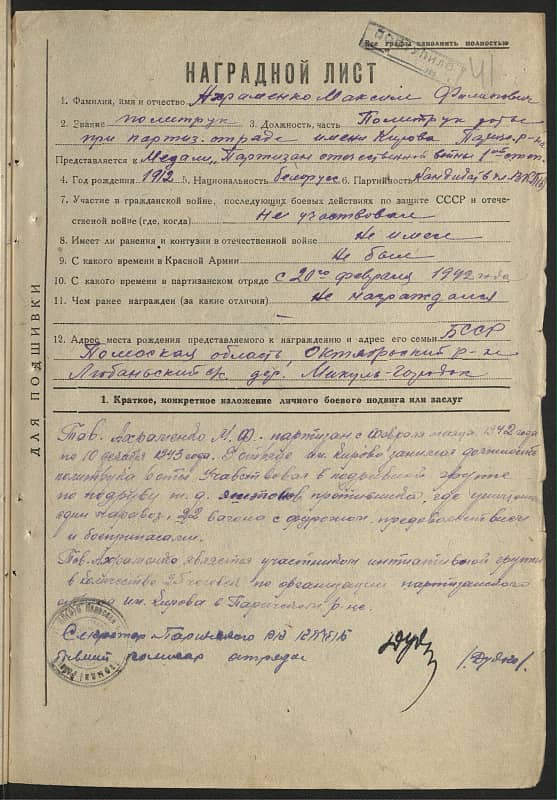 ПОСТУПИЛО
Все графы заполнить полностью
41
НАГРАДНОЙ ЛИСТ
1. Фамилия, имя и отчество Ахраменко Максим Филипович
2. Звание политрук 3. Должность, часть Политрук роты
при партиз. отряде имени Кирова Парич. р-на
Представляется к Медали „Партизан отечественной войны 1ой степ.
4. Год рождения 1912 5. Национальность белорус 6. Партийность Кандидат чл. ВКП(б)
7. Участие в гражданской войне, последующих боевых действиях по защите СССР и отече-
ственной войне (где, когда) Не участвовал
8. Имеет ли ранения и контузии в отечественной войне Не имеет
9. С какого времени в Красной Армии Не был
10. С какого времени в партизанском отряде с 20го февраля 1942 года
11. Чем ранее награжден (за какие отличия) Не награждался
12. Адрес места рождения представляемого к награждению и адрес его семьи БССР
Полеская область, Октябрьский р-н
Любаньский с/с дер. Микуль-Городок
ДЛЯ ПОДШИВКИ
1. Краткое, конкретное изложение личного боевого подвига или заслуг
Тов. Ахраменко М.Ф. партизан с февраля месяца 1942 года
по 10 декабря 1943 года. В отряде им. Кирова занимал должность
политрука роты. Учавствовал в подрывной группе
по подрыву ж.д. эшелонов противника, где уничтожено
один паровоз, 22 вагона с фуражом, продовольствием
и боеприпасами.
Тов. Ахраменко является участником инициативной группы
в количестве 25 человек по организации партизанского
отряда им. Кирова в Паричском р-не.
Секретарь Паричского РК КП(б)Б
бывший комиссар отряда